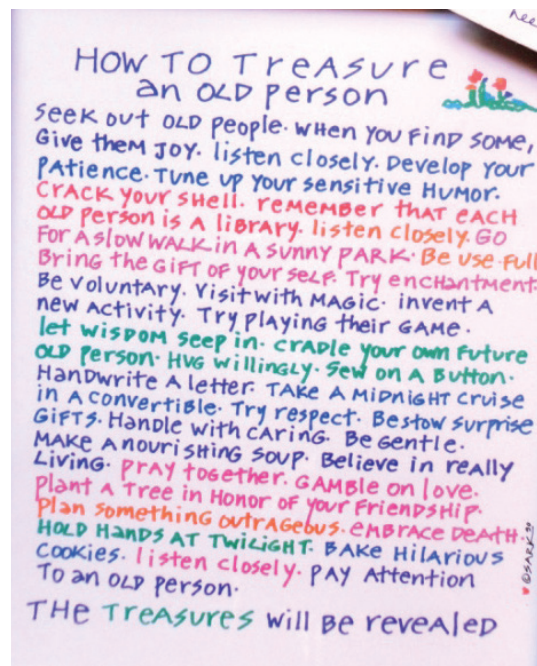 nee
HOW TO TreASure
an OLD person
Seek out OLD people. WHen YOU FIND SOME,
Give them JOY. listen closely. Develop Your
PAtience. Tune up Your Sensitive HUMOR.
CRACK Your SHell. reMeMber tHAT eACH
OLD person is A liBrary. listen closely. GO
For A slow WALK in A sunny PARK. Be use-Full
Bring the GIFT of your SeLF. Try encHAntment.
Be Voluntary. Visit with MAGic. invent A
new Activity. Try playing their GAMe.
let WISDOM seep in. crADle your own Future
OLD Person. HUG willinGLy. Sew on A Button.
HandWrite A letter. TAKE A MIDNIGHT cruise
in A convertible. Try respect. Bestow surprise
GIFTS. Handle with cAring. Be Gentle.
MAKE A nourisHing SOUP. Believe in reaLLy
Living. prAY toGether. GAMBle on love.
Plant A Tree in Honor of your FrienDsHip.
Plan something outrageous. eMBRACE DEATH.
HOLD HANDS AT TwiliGHT. BAKE Hilarious
COOkies. listen closely. PAY Attention
To an OLD person.
THe TreASures will Be reveAleD
♥©SARK